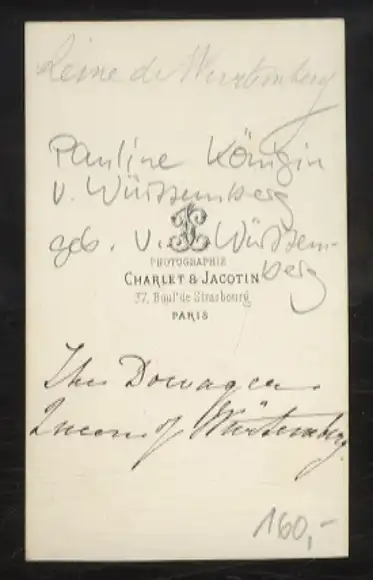 Reine de Wurtemberg
Pauline Königin
v. Württemberg
geb. v. Württem-
berg
PHOTOGRAPHIE
CHARLET & JACOTIN
37, Boul.ᵈ de Strasbourg
PARIS
The Dowager
Queen of Würtemberg.
160,-